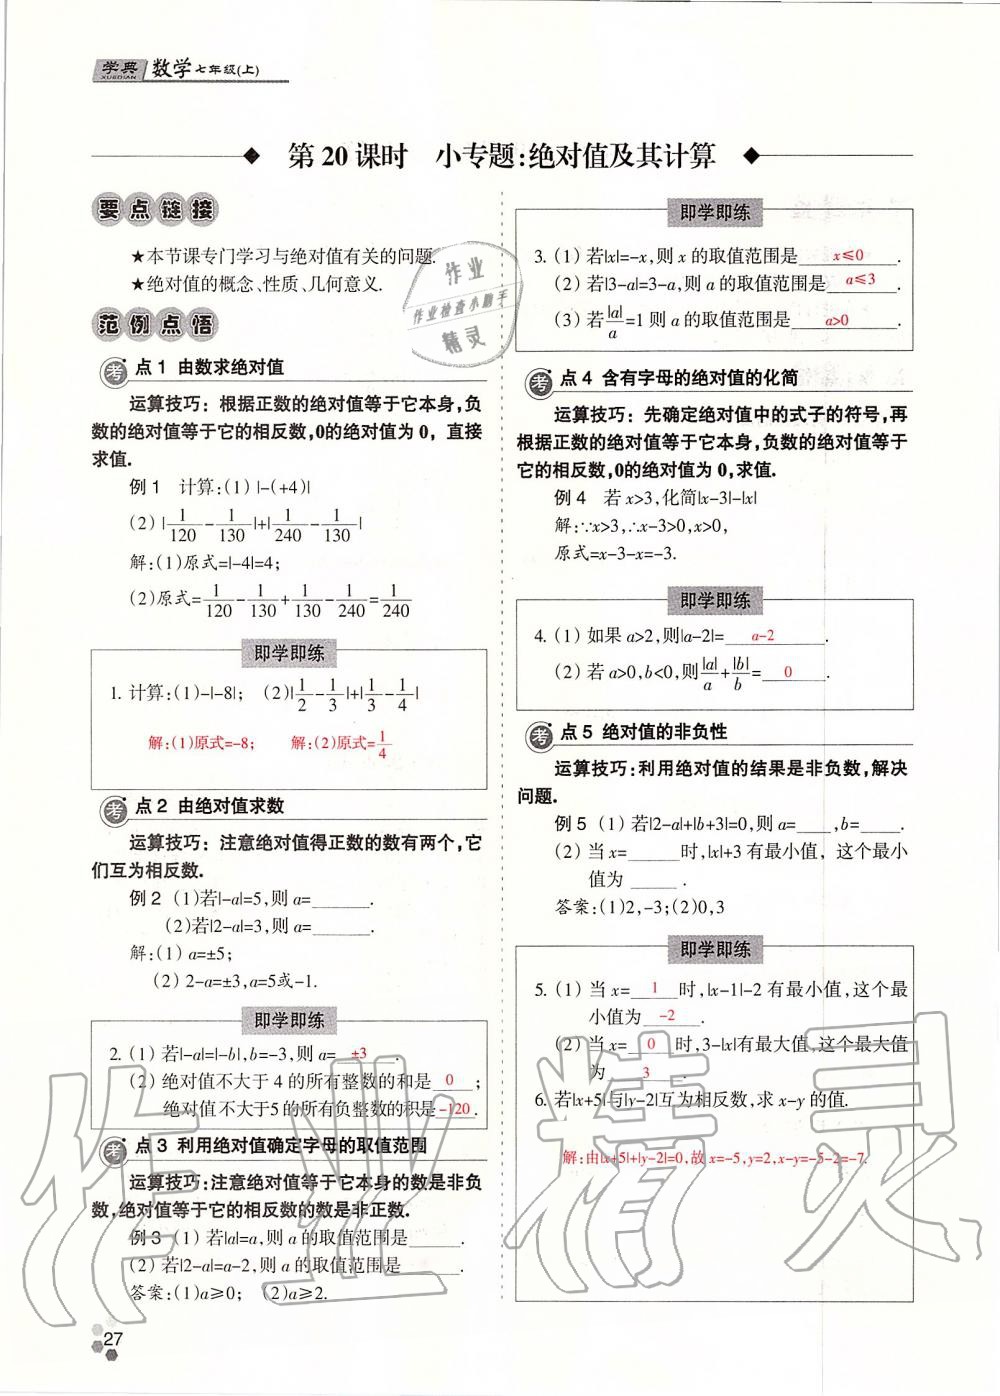 学典 XUEDIAN 数学 七年级(上)
第 20 课时 小专题:绝对值及其计算
要点链接
★本节课专门学习与绝对值有关的问题.
★绝对值的概念、性质、几何意义.
范例点悟
考点 1 由数求绝对值
运算技巧：根据正数的绝对值等于它本身,负
数的绝对值等于它的相反数,0的绝对值为 0，直接
求值.
例 1 计算:(1) |-(+4)|
(2) |1/120-1/130|+|1/240-1/130|
解:(1)原式=|-4|=4;
(2)原式=1/120-1/130+1/130-1/240=1/240
即学即练
1. 计算:(1)-|-8|; (2)|1/2-1/3|+|1/3-1/4|
解:(1)原式=-8; 解:(2)原式=1/4
考点 2 由绝对值求数
运算技巧：注意绝对值得正数的数有两个,它
们互为相反数.
例 2 (1)若|-a|=5,则 a=______.
(2)若|2-a|=3,则 a=______.
解:(1) a=±5;
(2) 2-a=±3,a=5或-1.
即学即练
2. (1) 若|-a|=|-b|,b=-3,则 a= ±3 .
(2) 绝对值不大于 4 的所有整数的和是 0 ;
绝对值不大于5 的所有负整数的积是-120.
考点 3 利用绝对值确定字母的取值范围
运算技巧:注意绝对值等于它本身的数是非负
数,绝对值等于它的相反数的数是非正数.
例 3 (1) 若|a|=a,则 a 的取值范围是______.
(2) 若|2-a|=a-2,则 a 的取值范围是______.
答案:(1)a≥0; (2)a≥2.
27
即学即练
3. (1) 若|x|=-x,则 x 的取值范围是 x≤0 .
(2) 若|3-a|=3-a,则 a 的取值范围是 a≤3 .
(3) 若|a|/a=1 则 a 的取值范围是 a>0 .
考点 4 含有字母的绝对值的化简
运算技巧：先确定绝对值中的式子的符号,再
根据正数的绝对值等于它本身,负数的绝对值等于
它的相反数,0的绝对值为 0,求值.
例 4 若 x>3,化简|x-3|-|x|
解:∵x>3,∴x-3>0,x>0,
原式=x-3-x=-3.
即学即练
4. (1) 如果 a>2,则|a-2|= a-2 .
(2) 若 a>0,b<0,则|a|/a+|b|/b= 0 .
考点 5 绝对值的非负性
运算技巧:利用绝对值的结果是非负数,解决
问题.
例 5 (1) 若|2-a|+|b+3|=0,则 a=____,b=____.
(2) 当 x=______时,|x|+3 有最小值，这个最小
值为______.
答案:(1)2,-3;(2)0,3
即学即练
5. (1) 当 x= 1 时,|x-1|-2 有最小值,这个最
小值为 -2 .
(2) 当 x= 0 时,3-|x|有最大值,这个最大值
为 3 .
6. 若|x+5|与|y-2|互为相反数,求 x-y 的值.
解:由|x+5|+|y-2|=0,故 x=-5,y=2,x-y=-5-2=-7.
作业
作业检查小助手
精灵
作业精灵